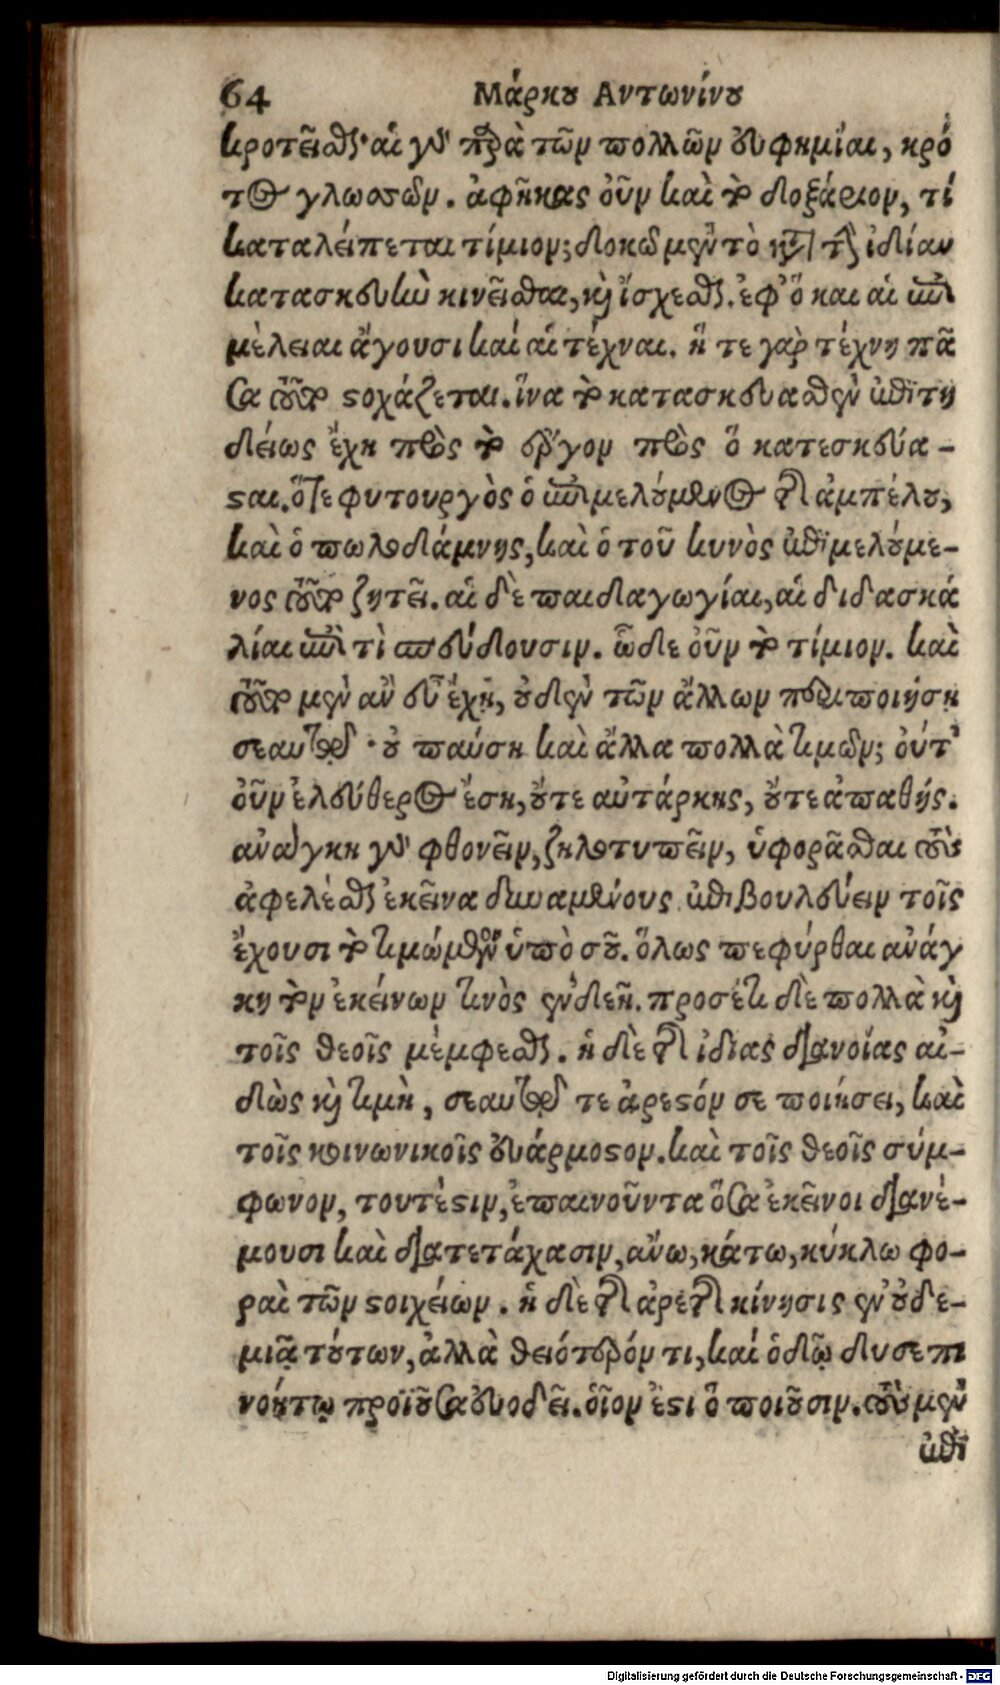 64 Μάρκου Αντωνίνου
κροτεῖσθαι· αἱ γὰρ παρὰ τῶν πολλῶν εὐφημίαι, κρό
τος γλωσσῶν. ἀφῆκας οὖν καὶ τὸ δοξάριον, τί
καταλείπεται τίμιον; δοκῶ μὲν τὸ κατὰ τὴν ἰδίαν
κατασκευὴν κινεῖσθαι, καὶ ἴσχεσθαι. ἐφ' ὃ και αἱ ἐπι
μέλειαι ἄγουσι καὶ αἱ τέχναι. ἥ τε γὰρ τέχνη πᾶ
σα τούτου στοχάζεται. ἵνα τὸ κατασκευασθὲν ἐπιτη
δείως ἔχῃ πρὸς τὸ ἔργον πρὸς ὃ κατεσκεύα-
σται. ὅ τε φυτουργὸς ὁ ἐπιμελούμενος τῆς ἀμπέλου,
καὶ ὁ πωλοδάμνης, καὶ ὁ τοῦ κυνὸς ἐπιμελούμε-
νος τοῦτο ζητεῖ. αἱ δὲ παιδαγωγίαι, αἱ διδασκα
λίαι ἐπὶ τὶ σπεύδουσιν. ὧδε οὖν τὸ τίμιον. καὶ
τοῦτο μὲν ἂν εὖ ἔχῃ, οὐδὲν τῶν ἄλλων περιποιήσῃ
σεαυτῷ· οὐ παύσῃ καὶ ἄλλα πολλὰ τιμῶν; οὔτ'
οὖν ἐλεύθερος ἔσῃ, οὔτε αὐτάρκης, οὔτε ἀπαθής.
ἀνάγκη γὰρ φθονεῖν, ζηλοτυπεῖν, ὑφορᾶσθαι τοὺς
ἀφελέσθαι ἐκεῖνα δυναμένους ἐπιβουλεύειν τοῖς
ἔχουσι τὸ τιμώμενον ὑπὸ σοῦ. ὅλως πεφύρθαι ἀνάγ
κη τὸν ἐκείνων τινὸς ἐνδεῆ. προσέτι δὲ πολλὰ καὶ
τοῖς θεοῖς μέμφεσθαι. ἡ δὲ τῆς ἰδίας διανοίας αἰ-
δὼς καὶ τιμὴ, σεαυτῷ τε ἀρεστόν σε ποιήσει, καὶ
τοῖς κοινωνικοῖς εὐάρμοστον. καὶ τοῖς θεοῖς σύμ-
φωνον, τουτέστιν, ἐπαινοῦντα ὅσα ἐκεῖνοι διανέ-
μουσι καὶ διατετάχασιν, ἄνω, κάτω, κύκλω φο-
ραὶ τῶν στοιχείων. ἡ δὲ τῆς ἀρετῆς κίνησις ἐν οὐδε-
μιᾷ τούτων, ἀλλὰ θειότερόν τι, καὶ ὁδῷ δυσεπι
νοήτῳ προϊοῦσα εὐοδεῖ. οἷον ἐστι ὃ ποιοῦσιν. τοὺς μὲν
ἐπὶ
Digitalisierung gefördert durch die Deutsche Forschungsgemeinschaft - DFG